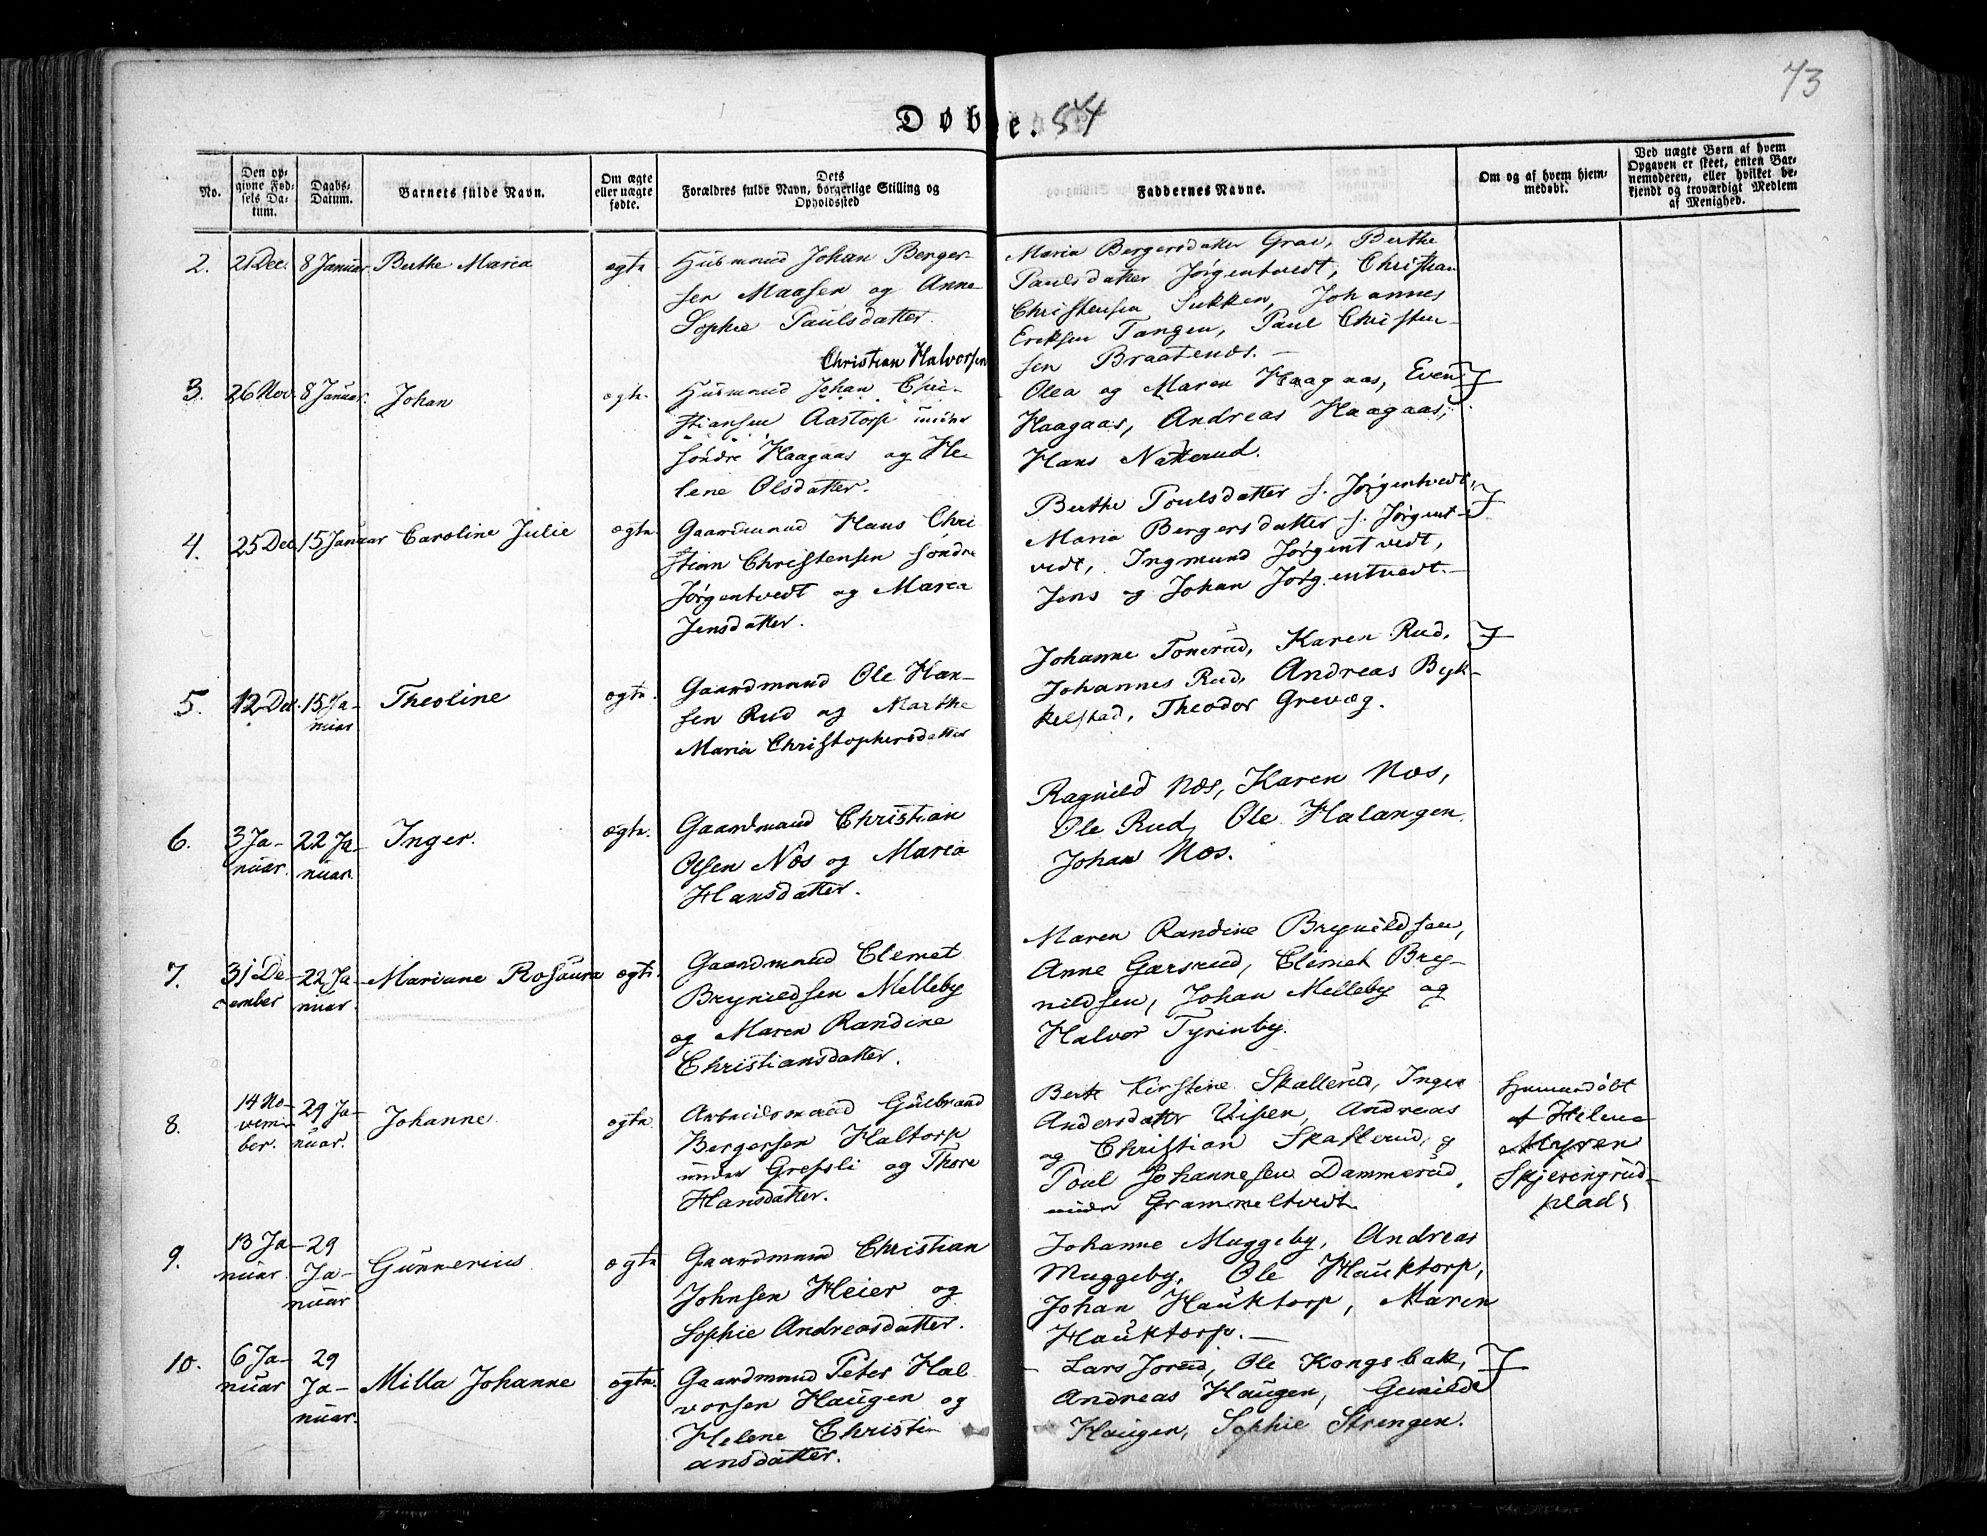 73
Døbte. 54
No.
Den opgivne Fødsels Datum.
Daabs-Datum.
Barnets fulde Navn.
Om ægte eller uægte fødte.
Dets Forældres fulde Navn, borgerlige Stilling og Opholdssted
Faddernes Navne.
Om og af hvem hjemmedøbt.
Ved uægte Børn af hvem Opgaven er skeet, enten Barnemoderen, eller hvilket bekjendt og troværdigt Medlem af Menighed.
2. 21 Dec. 8 Januar Berthe Maria ægte
Husmand Johan Berger-
sen Maasen og Anne
Sophie Paulsdatter.
Maria Bergersdatter Grav, Berthe
Paulsdatter Jørgentvedt, Christian
Christensen Sukken, Johannes
Eriksen Tangen, Paul Christen-
sen Braatenæs.
3. 26 Nov. 8 Januar. Johan ægte.
Christian Halvorsen
Husmand Johan Chri-
stiansen Aastorp under
søndre Haagaas og He-
lene Olsdatter.
Olea og Maren Haagaas, Even
Haagaas, Andreas Haagaas,
Hans Nakerud.
4. 25 Dec. 15 Januar Caroline Julie ægte
Gaardmand Hans Chri
stian Christensen søndre
Jørgentvedt og Maria
Jensdatter.
Berthe Poulsdatter s. Jørgentvedt,
Maria Bergersdatter s. Jørgent-
vedt, Ingmund Jørgentvedt,
Jens og Johan Jørgentvedt.
5. 12 Dec. 15 Ja-
nuar
Theoline ægte.
Gaardmand Ole Han-
sen Rud og Marthe
Maria Christophersdatter
Johanne Tonerud, Karen Rud,
Johannes Rud, Andreas Byk-
kelstad, Theodor Grevæg.
6. 3 Ja-
nuar.
22 Ja-
nuar.
Inger. ægte.
Gaardmand Christian
Olsen Næs og Maria
Hansdatter.
Ragnild Næs, Karen Næs,
Ole Rud, Ole Halangen
Johan Næs.
7. 31 De-
cember
22 Ja-
nuar.
Mariane Rosaura ægte.
Gaardmand Clemet
Brynildsen Melleby
og Maren Randine
Christiansdatter.
Maren Randine Brynildsen,
Anne Garsrud, Clemet Bry-
nildsen, Johan Melleby og
Halvor Tyrinby.
8. 14 No-
vem-
ber.
29 Ja-
nuar.
Johanne. ægte.
Arbeidsmand Gulbrand
Bergersen Haltorp
under Grefsli og Thore
Hansdatter.
Berte Kirstine Skallerud, Inger
Andersdatter Visen, Andreas
og Christian Skallerud, og
Poul Johannesen Dammerud
under Grammeltvedt
Hjemmedøbt
af Helene
Myren
Skjerengrud-
plads
9. 13 Ja-
nuar.
29
Ja-
nuar
Gunnerius ægte
Gaardmand Christian
Johnsen Heier og
Sophie Andreasdatter.
Johanne Muggeby, Andreas
Muggeby, Ole Hauktorp,
Johan Hauktorp, Maren
Hauktorp.
10. 6 Ja-
nuar
29
Ja-
nuar.
Milla Johanne ægte.
Gaardmand Peter Hal
vorsen Haugen og
Helene Christi
ansdatter.
Lars Jorud, Ole Kongsbak,
Andreas Haugen, Gunilde
Haugen, Sophie Strengen.